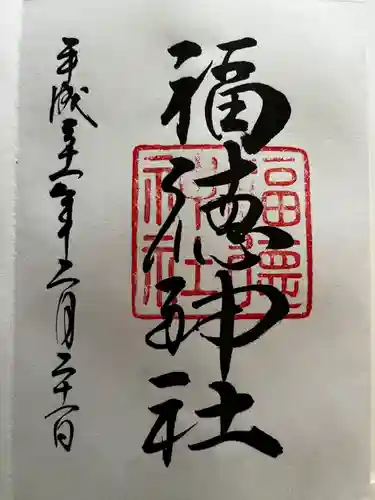 福徳神社
平成三十一年二月二十一日
福徳神社